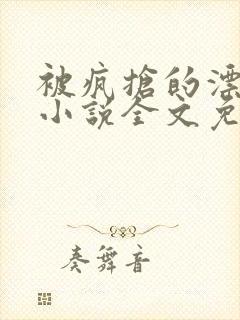 被疯搶的漂
小説全文免
奏舞音